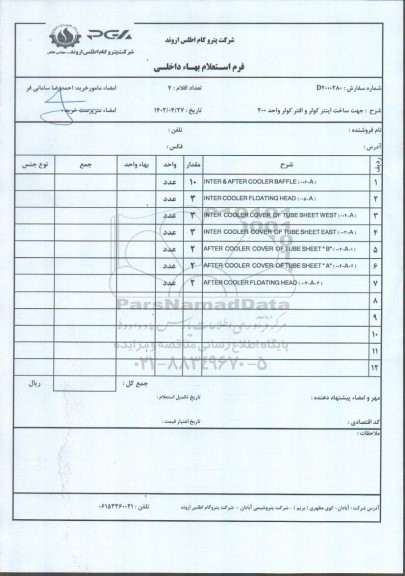 شرکت پترو گام اطلس اروند
PGA
شرکت پترو گام اطلس اروند
فرم استعلام بهاء داخلی
شماره سفارش : D۲۰۰۰۲۸۰
تعداد اقلام : ۷
امضاء مامور خرید: احمدرضا سامانی فر
شرح : جهت ساخت اینتر کولر و افتر کولر واحد ۲۰۰
تاریخ : ۱۴۰۲/۰۴/۲۷
امضاء سرپرست خرید :
نام فروشنده :
تلفن :
آدرس :
فکس :
ردیف شرح مقدار واحد بهاء واحد جمع نوع جنس
۱ INTER & AFTER COOLER BAFFLE عدد ۱۰
۲ INTER COOLER FLOATING HEAD عدد ۳
۳ INTER COOLER COVER OF TUBE SHEET WEST عدد ۳
۴ INTER COOLER COVER OF TUBE SHEET EAST عدد ۳
۵ AFTER COOLER COVER OF TUBE SHEET "B" عدد ۲
۶ AFTER COOLER COVER OF TUBE SHEET "A" عدد ۲
۷ AFTER COOLER FLOATING HEAD عدد ۲
۸
۹
۱۰
۱۱
۱۲
ParsNamadData
پایگاه اطلاع رسانی مناقصه و مزایده
۰۲۱-۸۸۳۴۹۶۷۰-۵
جمع کل : ریال
مهر و امضاء پیشنهاد دهنده :
تاریخ تکمیل استعلام :
کد اقتصادی :
تاریخ اعتبار قیمت :
ملاحظات :
آدرس شرکت : آبادان- کوی مطهری ( بریم ) - شرکت پتروشیمی آبادان - شرکت پتروگام اطلس اروند
تلفن : ۰۶۱۵۳۲۶۰۰۲۱